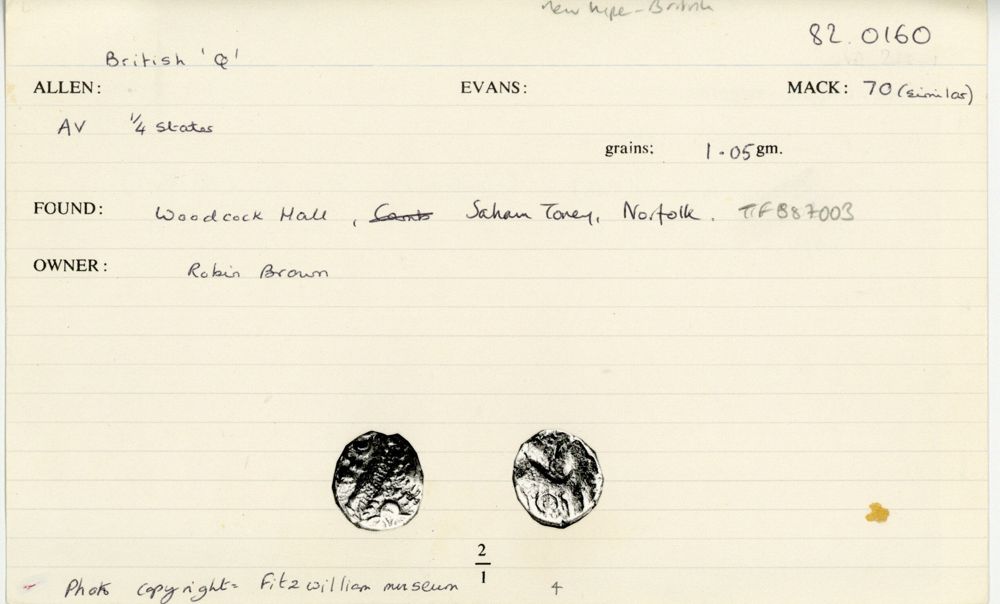 new type - British
82.0160
British 'Q'
ALLEN: EVANS: MACK: 70 (similar)
AV 1/4 stater
grains: 1.05 gm.
FOUND: Woodcock Hall, Cambs Saham Toney, Norfolk. TF 887003
OWNER: Robin Brown
2
1
Photo copyright = Fitzwilliam museum 4